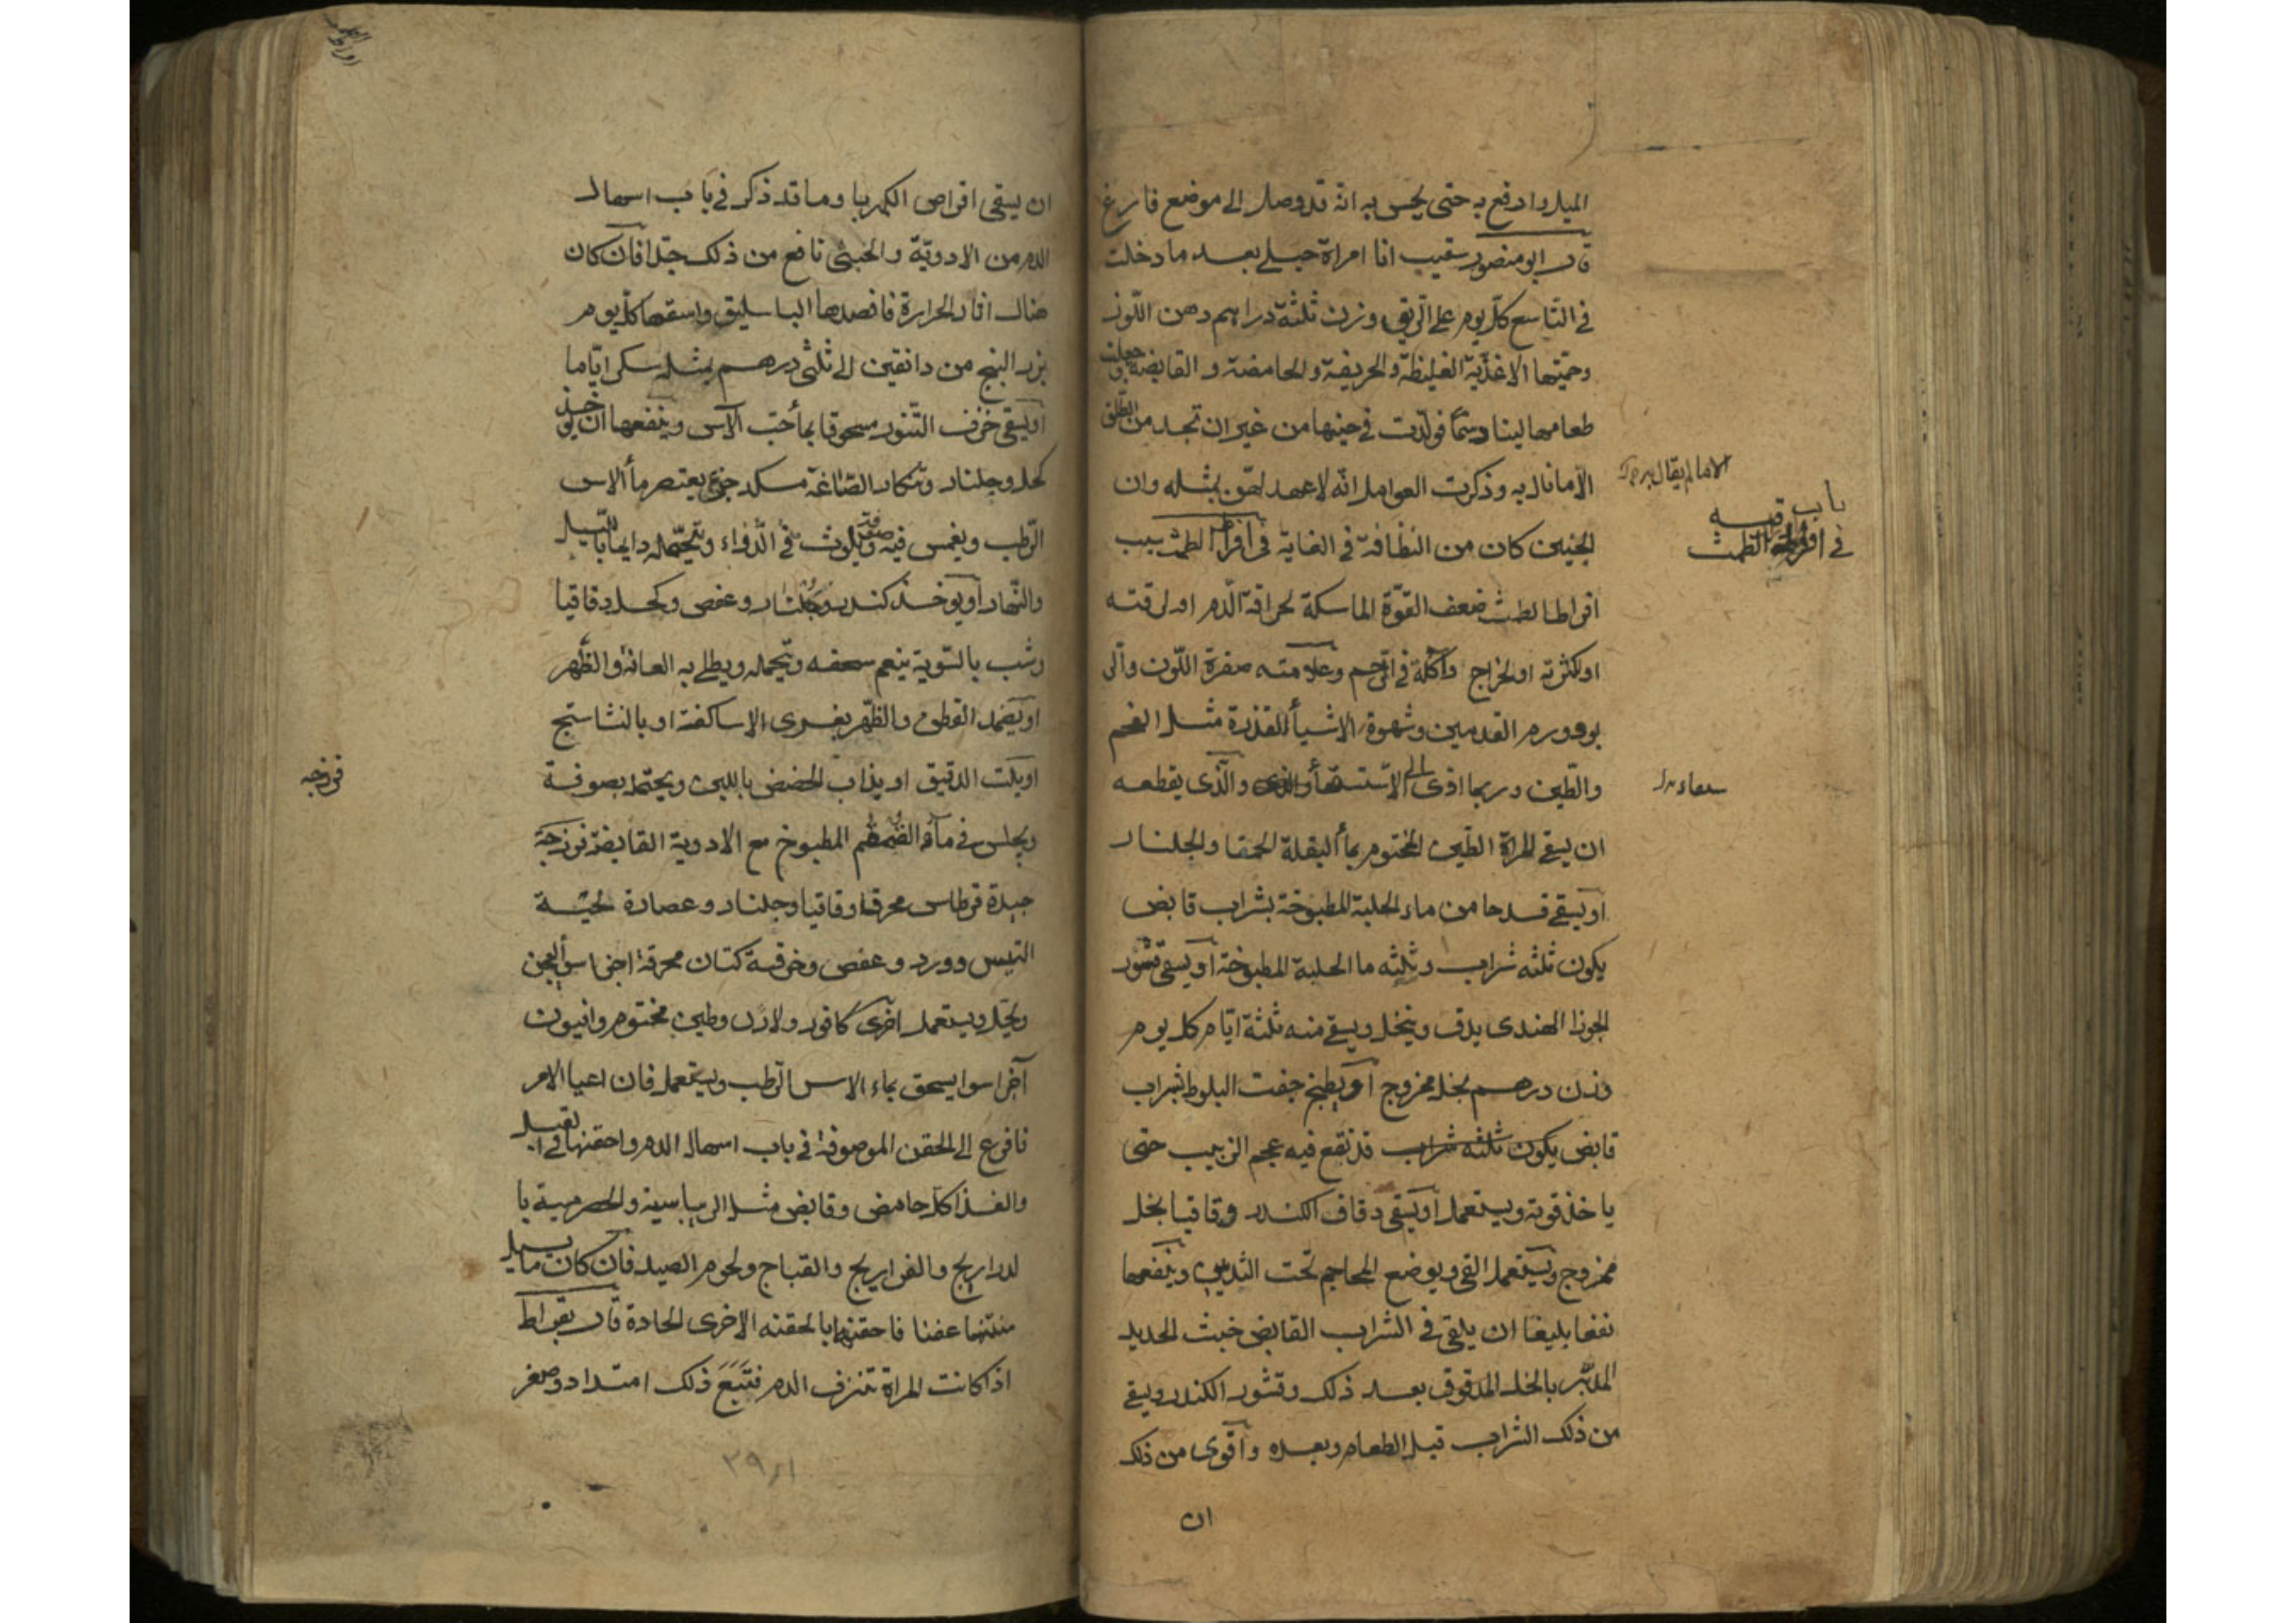 الميل وادفع به حتى يحس به انه قد وصل الى موضع فارغ
قال ابو منصور سقيت انا امراة حبلى بعد ما دخلت
في التاسع كل يوم على الريق وزن ثلثة دراهم دهن اللوز
وحميتها الاغذية الغليظة والحريفة والحامضة و القابضة جعلت
طعامها لينا دسما فولدت في حينها من غير ان تجد من الطلق
الا ما نال به وذكرت العوامل انه لا عهد لهن بمثله وان
الجنين كان من النظافة في الغاية في افراط الطمث سبب
باب
في افراط الطمث
افراط الطمث ضعف القوة الماسكة لحرافة الدم او لرقته
او لكثرته او لخراج واكلة في الرحم وعلامته صفرة اللون و
ورم القدمين وشهوة الاشيأ القذرة مثل الفحم
والطين وربما ادى الى الاستسقأ والذى يقطعه
ان يسقى المراة الطين المختوم بمأ البقلة الحمقا والجلنار
او يسقى قدحا من ماء الحلبة المطبوخة بشراب قابض
يكون ثلثه شراب وثلثه ما الحلبة المطبوخة او يسقى قشور
الجوز الهندى يدق وينخل ويسقى منه ثلثة ايام كل يوم
وزن درهم بخل ممزوج او يطبخ جفت البلوط بشراب
قابض يكون ثلثه شراب قد نقع فيه عجم الزبيب حتى
ياخذ قوته ويستعمل او يسقى دقاق الكندر وقاقيا بخل
ممزوج ويستعمل القى ويوضع المحاجم تحت الثديين وينفعها
نفعا بليغا ان يلقى في الشراب القابض خبث الحديد
المدبر بالخل المدقوق بعد ذلك وقشور الكندر ويسقى
من ذلك الشراب قبل الطعام وبعده واقوى من ذلك
ان
ان يسقى اقراص الكهربا وما قد ذكر في باب اسهال
الدم من الادوية والخبثى نافع من ذلك جدا فان كان
هناك اثار الحرارة فافصدها الباسليق واسقها كل يوم
بزر البنج من دانقين الى ثلثى درهم بمثله سكر اياما
او يسقى خزف التنور مسحوقا بمأ حب الآس وينفعها ان يوخذ
كحل وجلنار وتنكار الصاغة مسك جزء يعتصر مأ الاس
الرطب ويغمس فيه صوفة ويلوث في الدواء ويتحمله دايما بالليل
والنهار او يوخذ كندر وجلنار وعفص وكحل وقاقيا
وشب بالسوية ينعم سحقه ويتحمله ويطلى به العانة والظهر
او يضمد القطن والظهر بغرى الاساكفة او بالنشاستج
او يلت الدقيق او يذاب الحضض باللبن ويحتمل بصوفة
فرزجه
ويجلس في مآء القمقم المطبوخ مع الادوية القابضة فرزجة
جيدة قرطاس محرق وقاقيا وجلنار وعصارة لحية
التيس وورد وعفص وخرقة كتان محرقة اجزا سوا يعجن
بخل ويستعمل اخرى كافور ولاذن وطين مختوم وافيون
اجزا سوا يسحق بماء الاس الرطب ويستعمل فان اعيا الامر
فافزع الى الحقن الموصوفة في باب اسهال الدم واحقنها في القبل
والغذا كل حامض وقابض مثل الريباسية والحصرمية با
لدراريج والفراريج والقباج ولحوم الصيد فان كان ما يسيل
منتنا عفنا فاحقنها بالحقنه الاخرى الحادة قال بقراط
اذا كانت المراة تنزف الدم فتبع ذلك امتداد وصغر
٣٩١